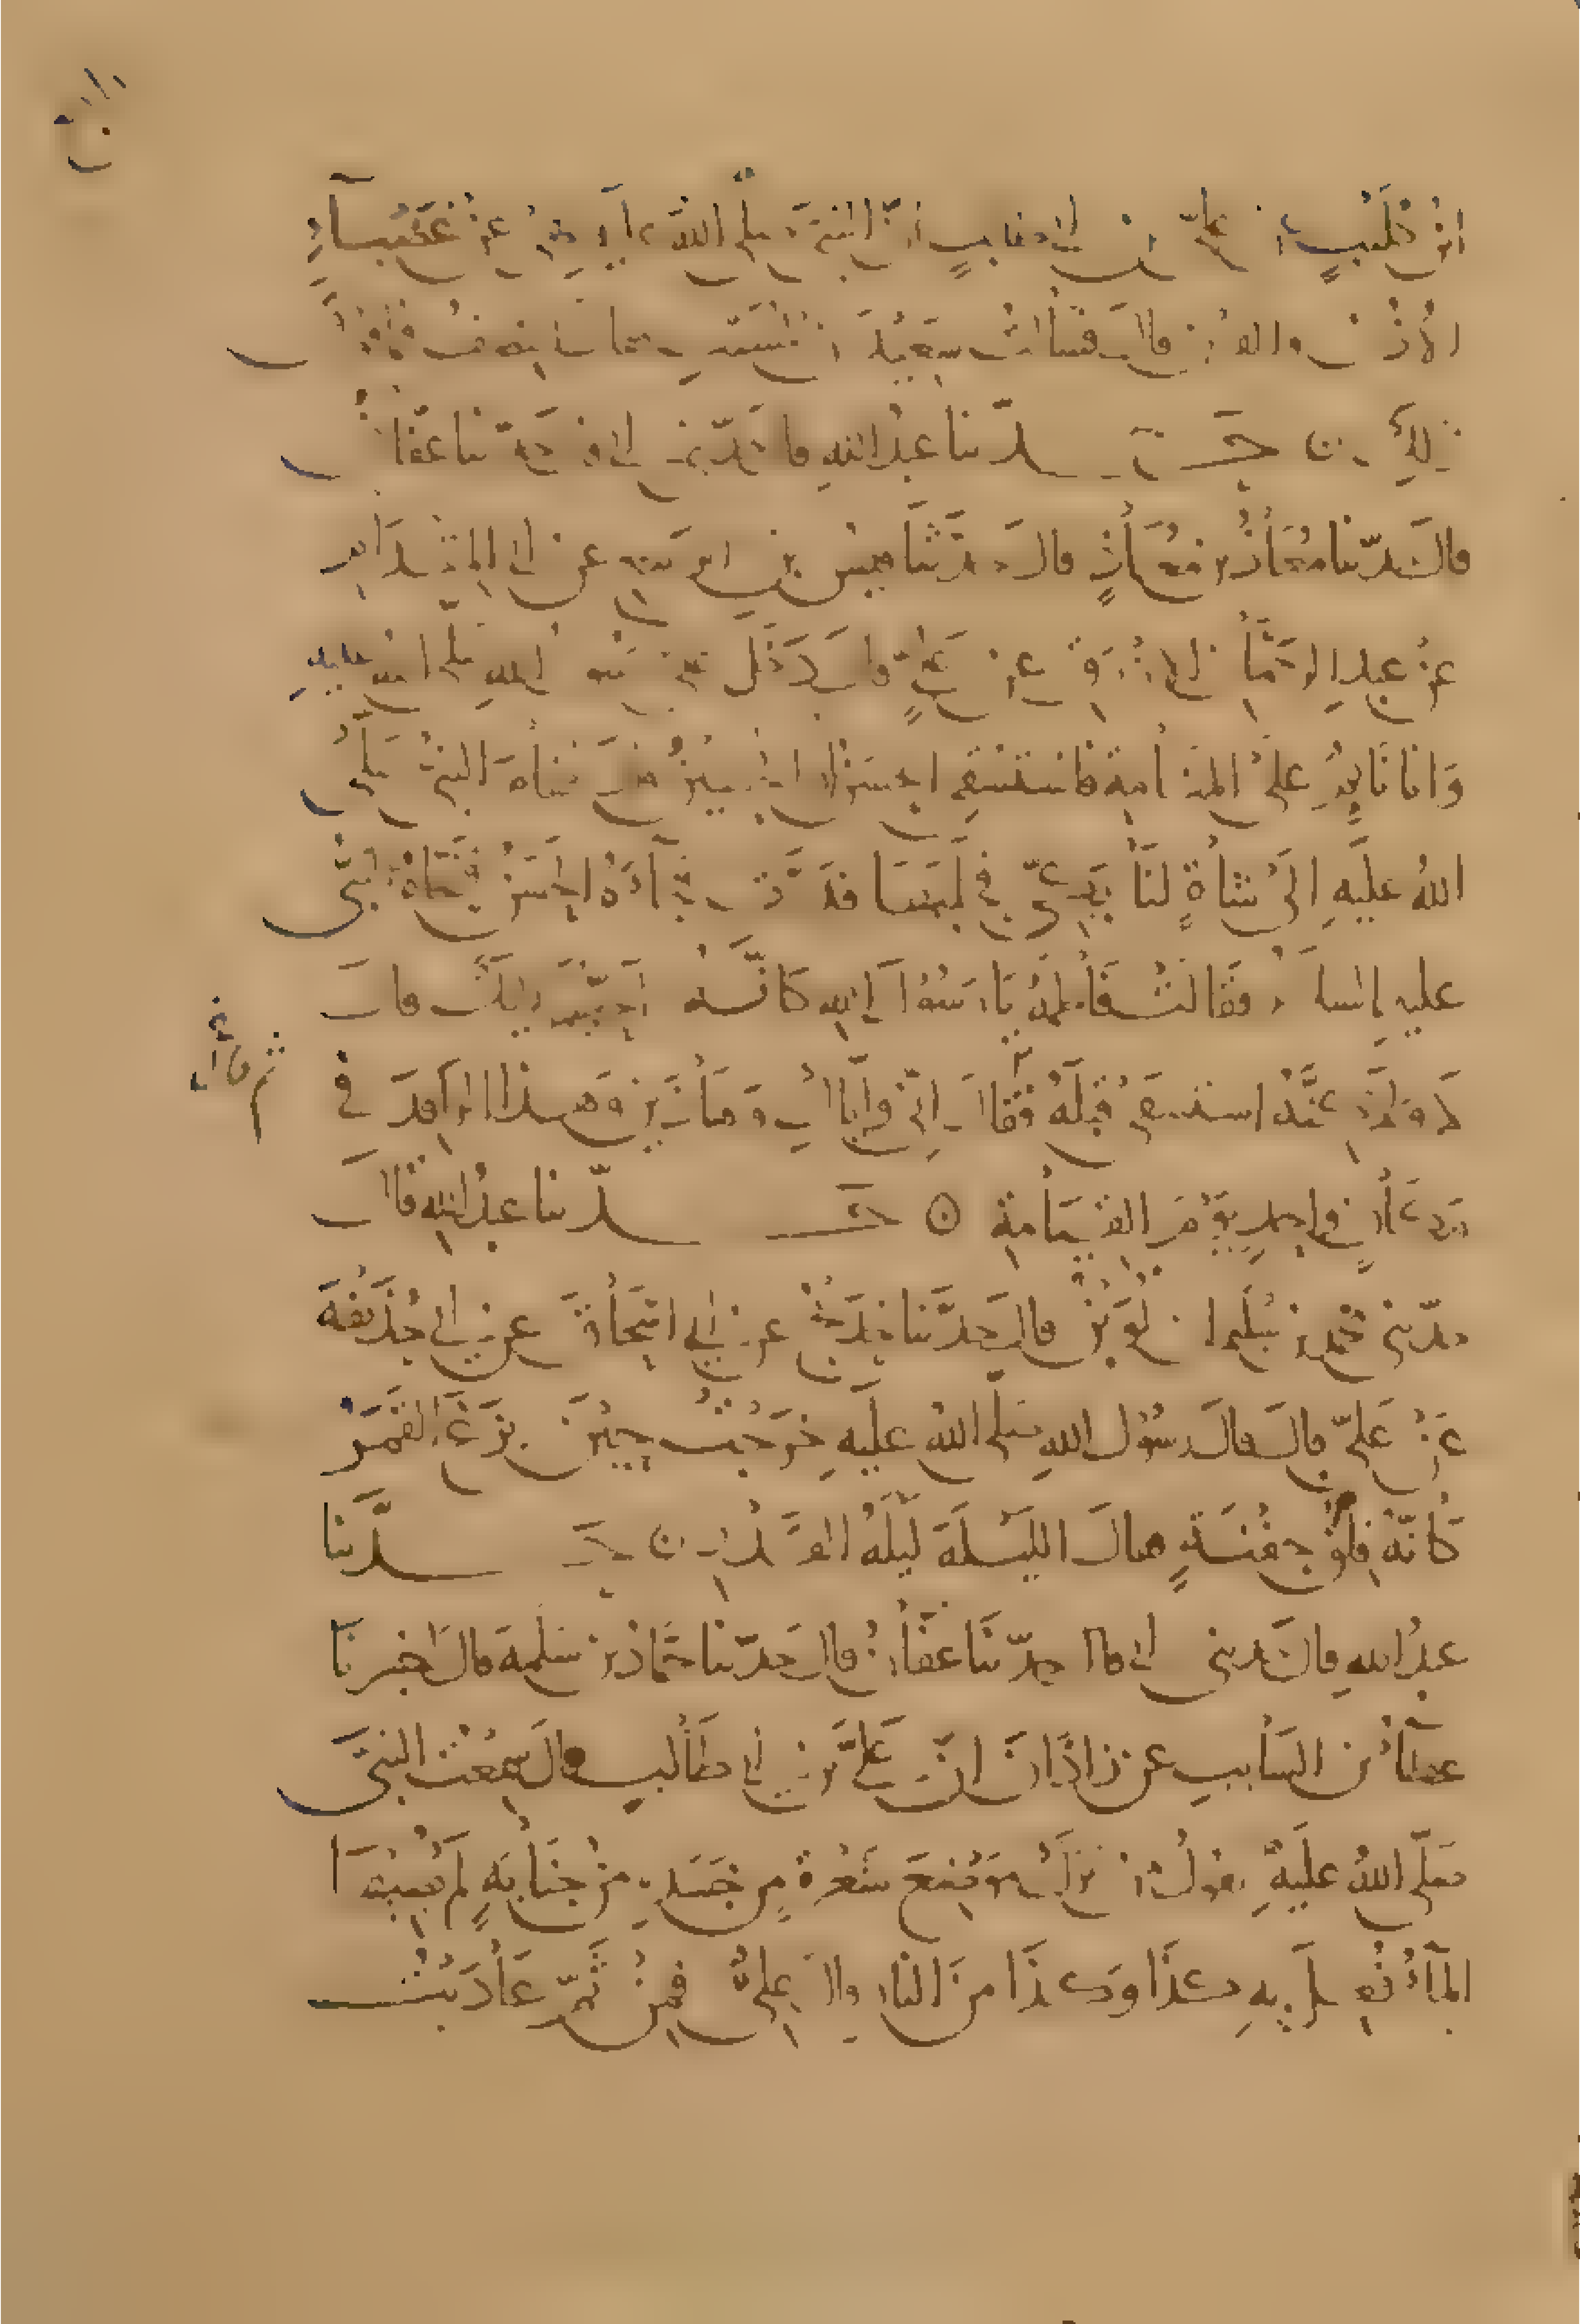 ابن كليب عن علي بن ابي طالب ان النبي صلى الله عليه نهى عن عضباء
الاذن والقرن قال فسالت سعيد بن المسيب ما العضب فقال
حدثنا عبد الله قال حدثني ابي حدثنا عفان
قال حدثنا معاذ بن معاذ قال حدثنا قيس بن الربيع عن ابي المقدام
عن عبد الرحمن الازرق عن علي قال دخل علي رسول الله صلى الله عليه
وانا نايم على المنامة فاستسقى الحسن او الحسين قال فقام النبي صلى
الله عليه الى شاة لنا بكي فحلبها فدرت فجاءه الحسن فنحاه النبي
عليه السلام فقالت فاطمة يا رسول الله كانه احبهما اليك قال
لا ولكنه استسقى قبله ثم قال اني واياك وهذين وهذا الراقد في
مكان واحد يوم القيامة حدثنا عبد الله قال
حدثني محمد بن سليمان لوين قال حدثنا حديج عن ابي اسحاق عن ابي حذيفة
عن علي قال قال رسول الله صلى الله عليه خرجت حين بزغ القمر
كانه فلق جفنة فقال الليلة ليلة القدر حدثنا
عبد الله قال حدثني ابي قال حدثنا عفان قال حدثنا حماد بن سلمة قال اخبرنا
عطاء بن السايب عن زاذان ان علي بن ابي طالب قال سمعت النبي
صلى الله عليه يقول من ترك موضع شعرة من جسده من جنابة لم يصبها
الماء فعل به كذا وكذا من النار قال علي فمن ثم عاديت